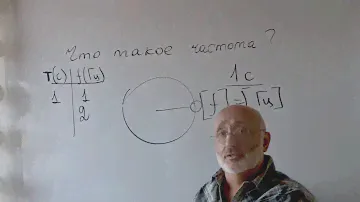 Что такое частота ?
T(c) f(Гц)
1 1
2
1с
[f]=[Гц]